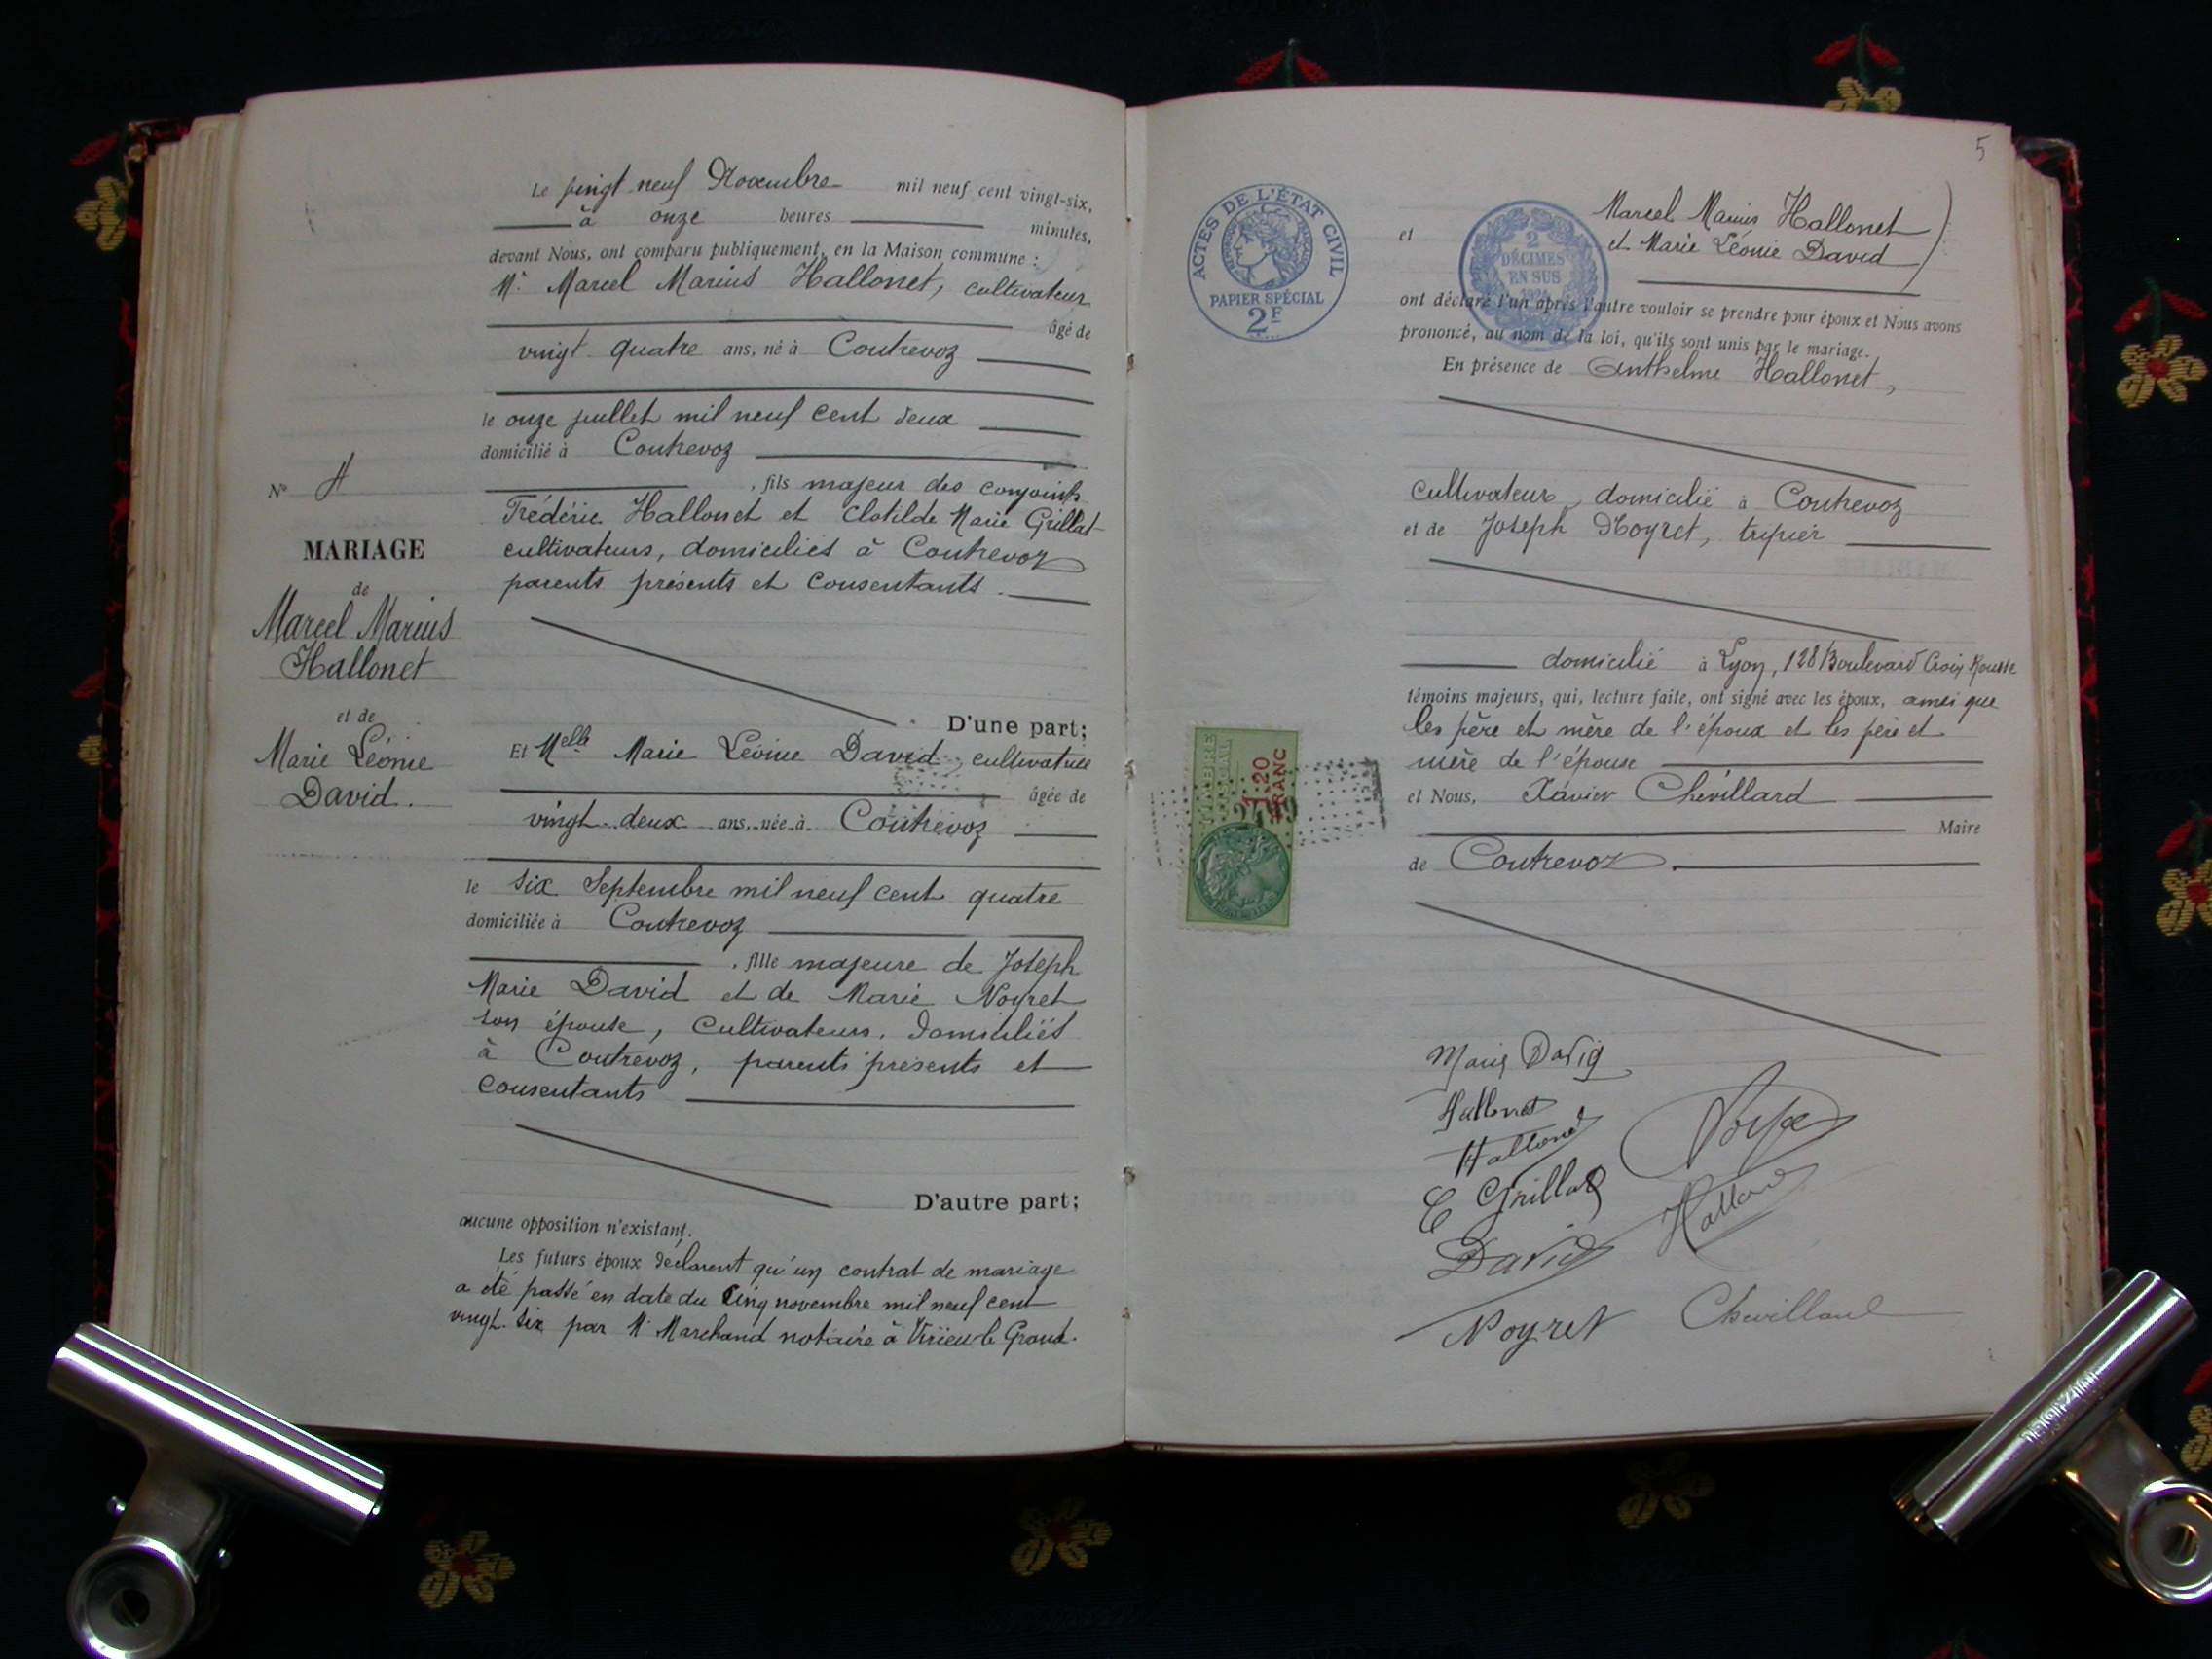 Le vingt neuf Novembre mil neuf cent vingt-six,
à onze heures minutes,
devant Nous, ont comparu publiquement, en la Maison commune :
Mr Marcel Marius Hallonet, cultivateur
âgé de
vingt quatre ans, né à Contrevoz
le onze juillet mil neuf cent deux
domicilié à Contrevoz
, fils majeur des conjoints
Frédéric Hallonet et Clotilde Marie Grillat
cultivateurs, domiciliés à Contrevoz
parents présents et consentants.
D'une part;
Et Melle Marie Léonie David, cultivatrice
âgée de
vingt-deux ans, née à Contrevoz
le six Septembre mil neuf cent quatre
domiciliée à Contrevoz
, fille majeure de Joseph
Marie David et de Marie Noyret
son épouse, cultivateurs, domiciliés
à Contrevoz, parents présents et
consentants
D'autre part;
aucune opposition n'existant.
Les futurs époux déclarent qu'un contrat de mariage
a été passé en date du Cinq novembre mil neuf cent
vingt-six par Me Marchand notaire à Virieu-le-Grand.
No 4
MARIAGE
de
Marcel Marius
Hallonet
et de
Marie Léonie
David.
5
ACTES DE L'ÉTAT CIVIL
PAPIER SPÉCIAL
2F
2
DÉCIMES
EN SUS
1924
Marcel Marius Hallonet
et
et Marie Léonie David
ont déclaré l'un après l'autre vouloir se prendre pour époux et Nous avons
prononcé, au nom de la loi, qu'ils sont unis par le mariage.
En présence de Anthelme Hallonet,
cultivateur, domicilié à Contrevoz
et de Joseph Noyret, tripier
domicilié à Lyon, 128 Boulevard Croix Rousse
témoins majeurs, qui, lecture faite, ont signé avec les époux, ainsi que
les père et mère de l'époux et les père et
mère de l'épouse
et Nous, Xavier Chevillard
Maire
de Contrevoz.
TIMBRE
FISCAL
1.20
FRANC
Marie David
Hallonet
Hallonet
C Grillat
Hallonet
David
Noyret
Chevillard